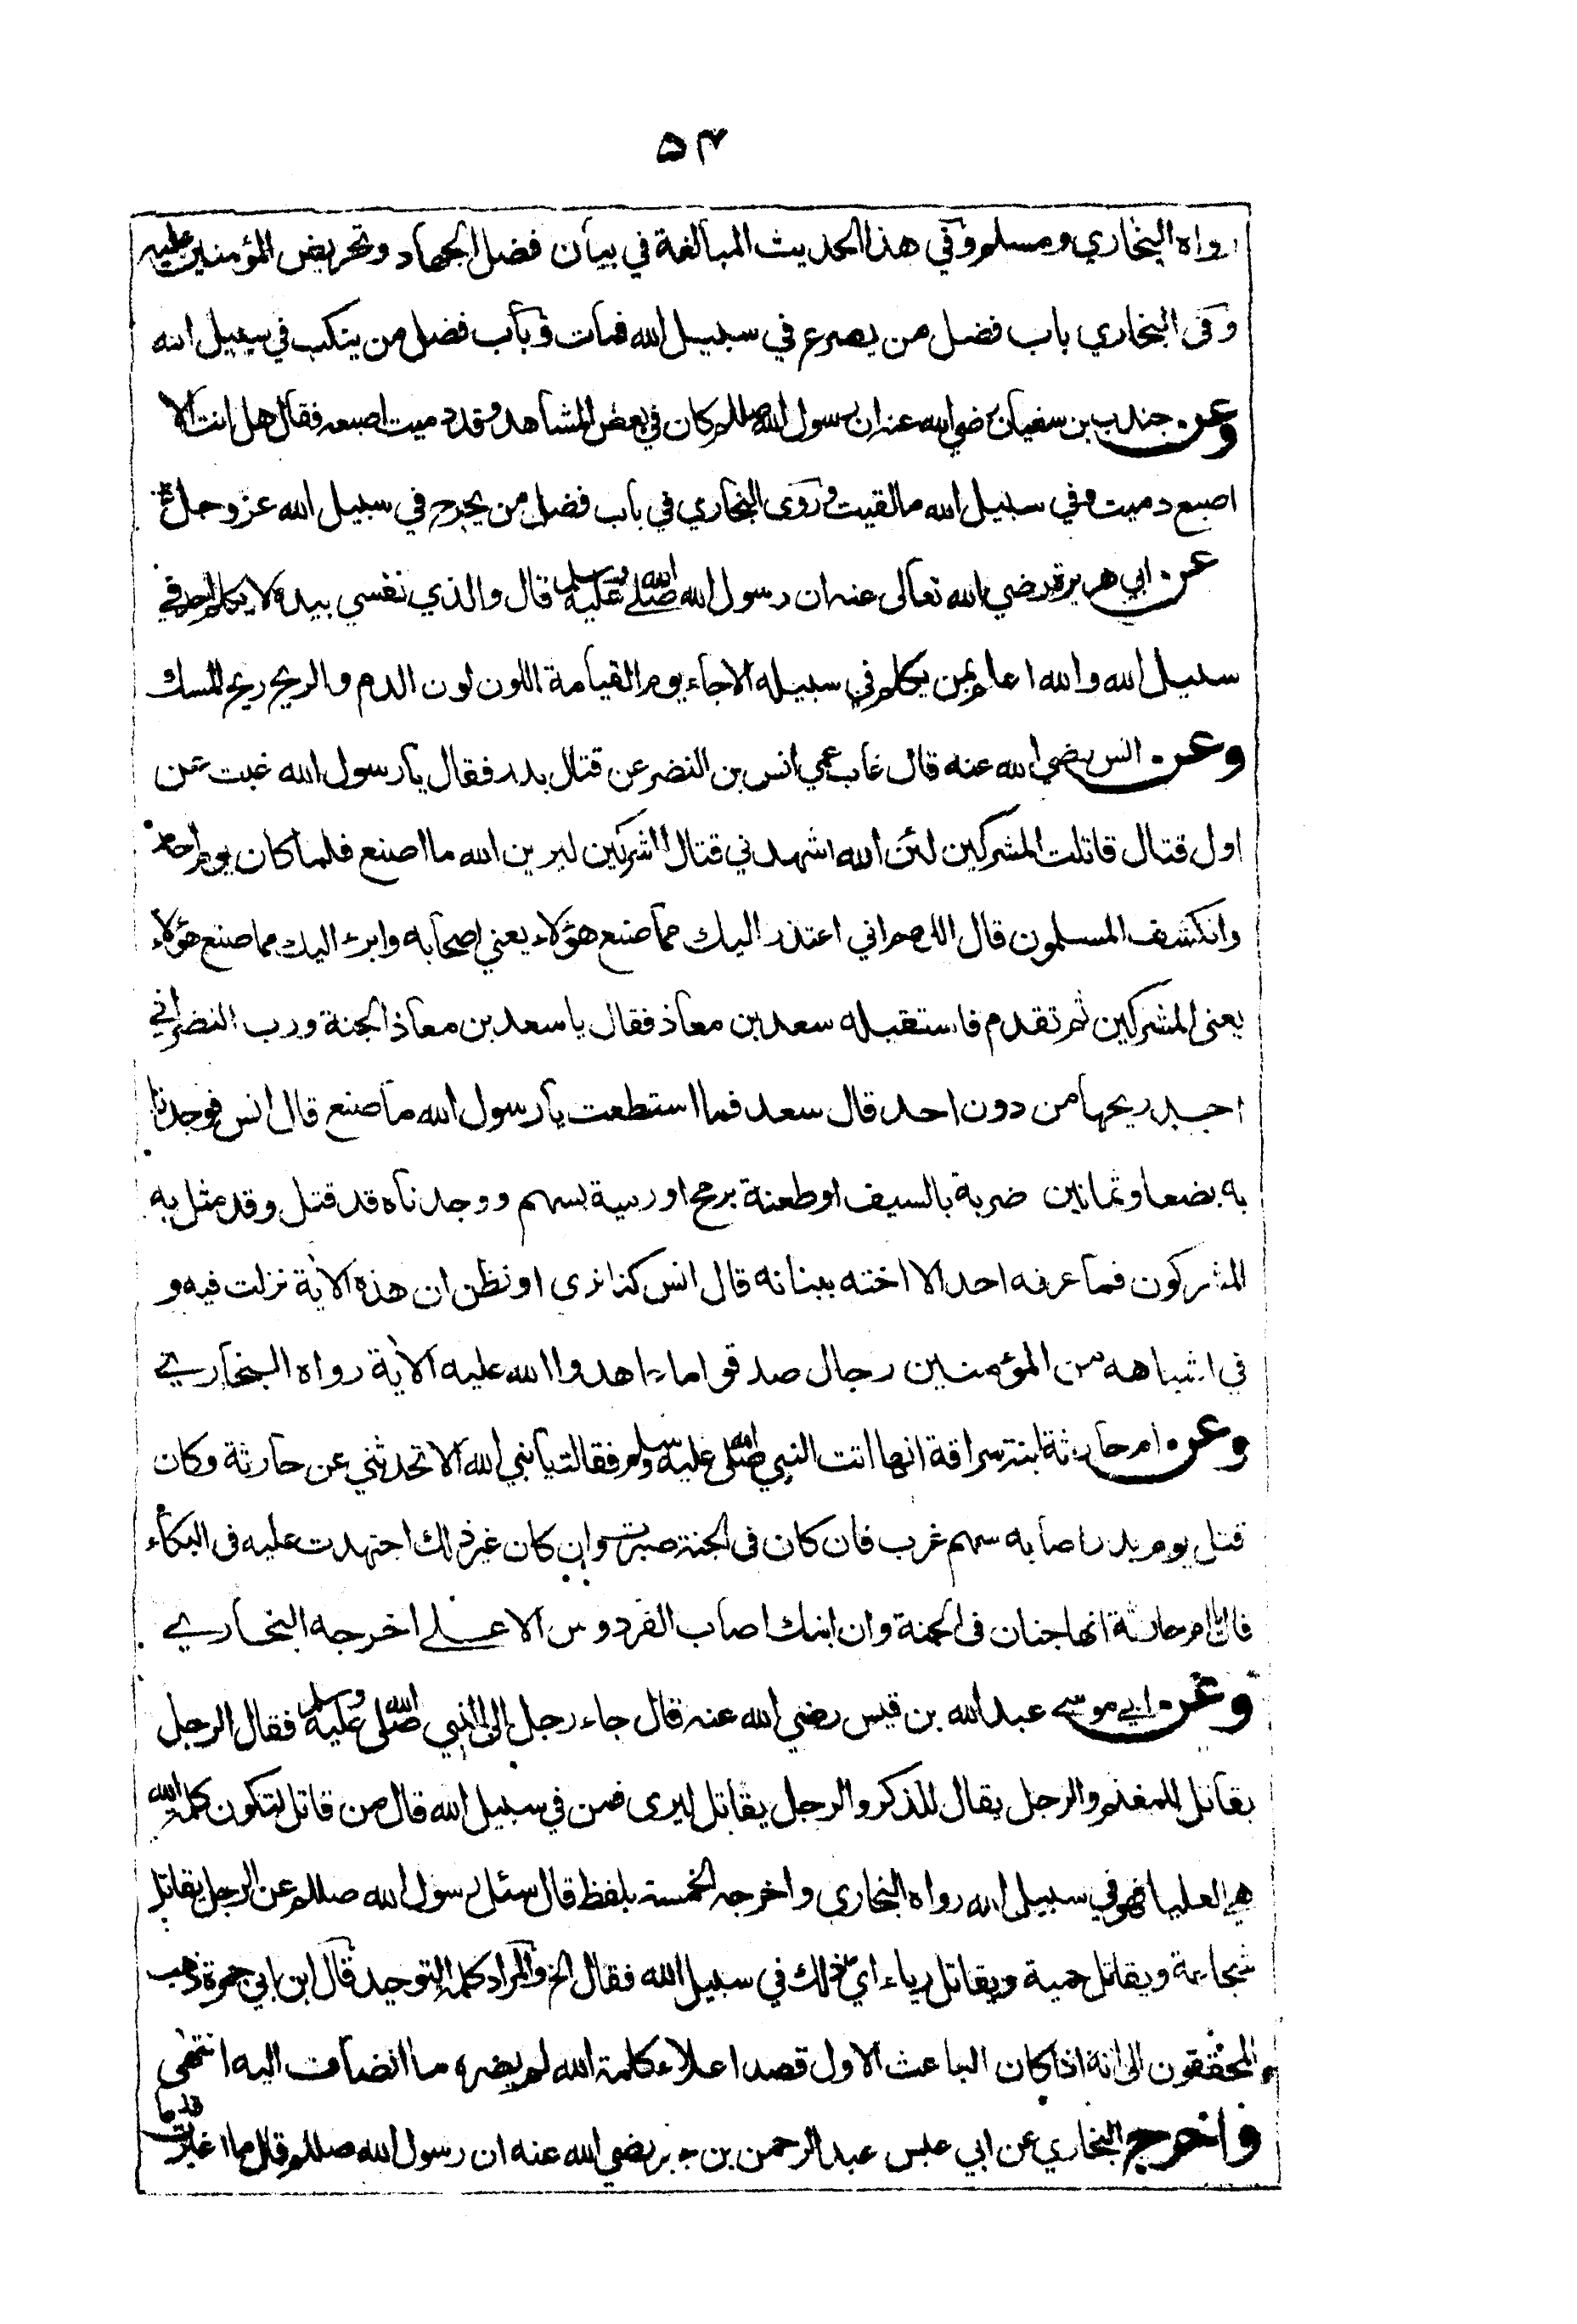 ٥٣
رواه البخاري ومسلم وفي هذا الحديث المبالغة في بيان فضل الجهاد وتحريض المؤمنين عليه
وفى البخاري باب فضل من يصرع في سبيل الله فمات وباب فضل من ينكب في سبيل الله
وعن جندب بن سفيان رضي الله عنه ان رسول الله صللم كان في بعض المشاهد وقد دميت اصبعه فقال هل انت الا
اصبع دميت وفي سبيل الله مالقيت وروى البخاري في باب فضل من يجرح في سبيل الله عز وجل
عن ابي هريرة رضي الله تعالى عنه ان رسول الله صلى الله عليه وسلم قال والذي نفسي بيده لا يكلم احد في
سبيل الله والله اعلم بمن يكلم في سبيله الا جاء يوم القيامة اللون لون الدم والريح ريح المسك
وعن انس رضي الله عنه قال غاب عمي انس بن النضر عن قتال بدر فقال يا رسول الله غبت عن
اول قتال قاتلت المشركين لئن الله اشهدني قتال المشركين ليرين الله ما اصنع فلما كان يوم احد
وانكشف المسلمون قال اللهم اني اعتذر اليك مما صنع هؤلاء يعني اصحابه وابرء اليك مما صنع هؤلاء
يعنى المشركين ثم تقدم فاستقبله سعد بن معاذ فقال يا سعد بن معاذ الجنة ورب النضر اني
اجد ريحها من دون احد قال سعد فما استطعت يا رسول الله ما صنع قال انس فوجدنا
به بضعا وثمانين ضربة بالسيف او طعنة برمح او رمية بسهم ووجدناه قد قتل وقد مثل به
المشركون فما عرفه احد الا اخته ببنانه قال انس كنا نرى او نظن ان هذه الاية نزلت فيه و
في اشباهه من المؤمنين رجال صدقوا ما عاهدوا الله عليه الاية رواه البخاري
وعن ام حارثة ابنة سراقة انها اتت النبي صلى الله عليه وسلم فقالت يا نبي الله الا تحدثني عن حارثة وكان
قتل يوم بدر اصابه سهم غرب فان كان فى الجنة صبرت وان كان غير ذلك اجتهدت عليه فى البكاء
قال يا ام حارثة انها جنان فى الجنة وان ابنك اصاب الفردوس الاعلى اخرجه البخاري
وعن ابي موسى عبد الله بن قيس رضي الله عنه قال جاء رجل الى النبي صلى الله عليه وسلم فقال الرجل
يقاتل للمغنم والرجل يقال للذكر والرجل يقاتل ليرى فمن في سبيل الله قال من قاتل لتكون كلمة الله
هي العليا فهو في سبيل الله رواه البخاري واخرجه الخمسة بلفظ قال سئل رسول الله صللم عن الرجل يقاتل
شجاعة ويقاتل حمية ويقاتل رياء اي ذلك في سبيل الله فقال الخ والمراد كلمة التوحيد قال ابن ابي جمرة ذهب
المحققون الى انه اذا كان الباعث الاول قصد اعلاء كلمة الله لم يضره ما انضاف اليه انتهى
واخرج البخاري عن ابي عبس عبد الرحمن بن جبر رضي الله عنه ان رسول الله صللم قال ما اغبرت قدما